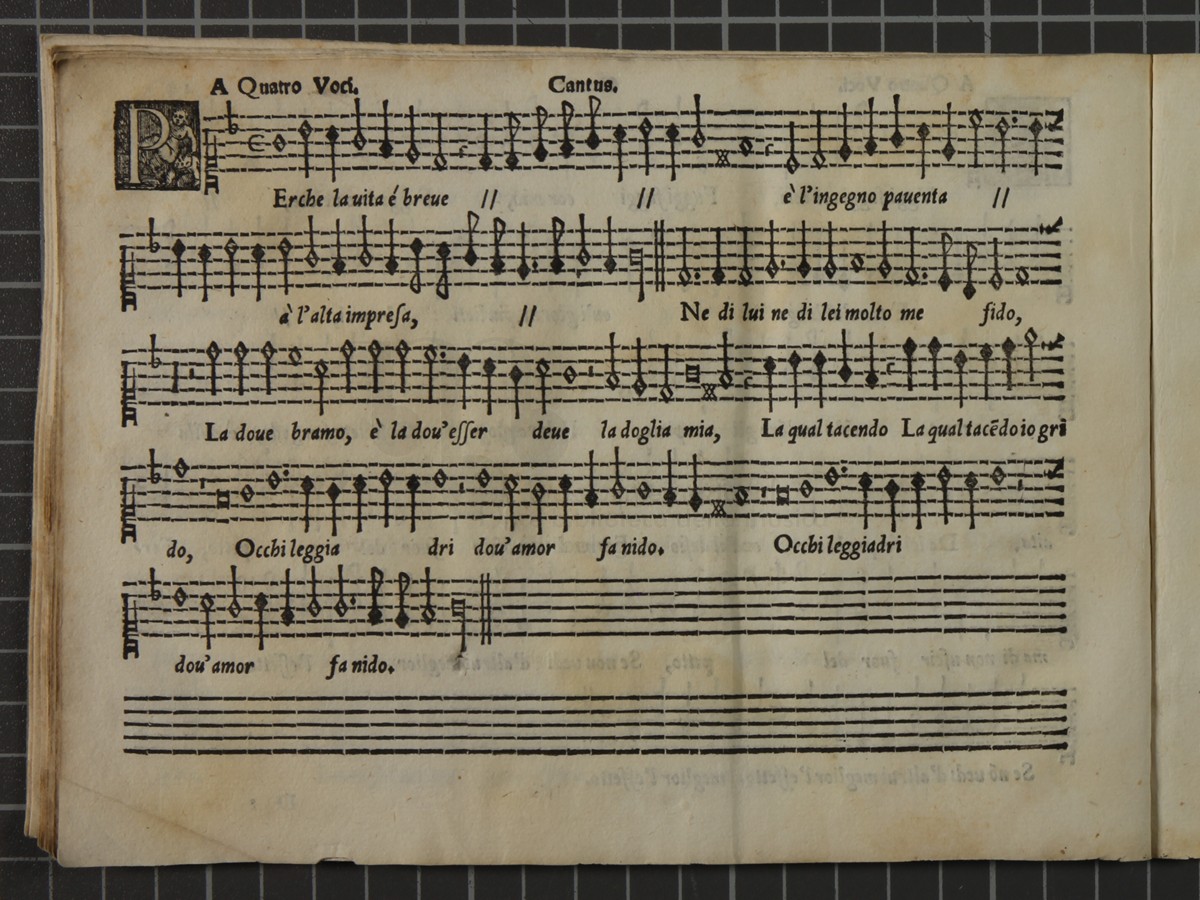 A Quatro Voci. Cantus.
P Erche la uita é breue // // è l'ingegno pauenta //
à l'alta impresa, // Ne di lui ne di lei molto me fido,
La doue bramo, è la dou'esser deue la doglia mia, La qual tacendo La qual tacēdo io gri
do, Occhi leggia dri dou'amor fa nido. Occhi leggiadri
dou'amor fa nido.